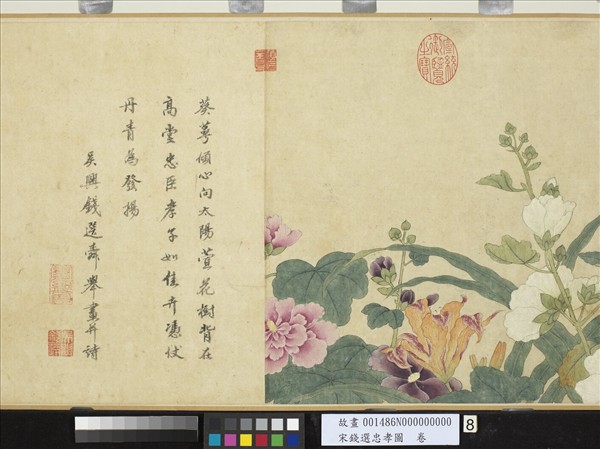 葵蕚傾心向太陽萱花樹背在
高堂忠臣孝子如佳卉憑仗
丹青為發揚
吳興錢選舜舉畫并詩
宣統御覽之寶
故畫 001486N000000000
宋錢選忠孝圖 卷
8